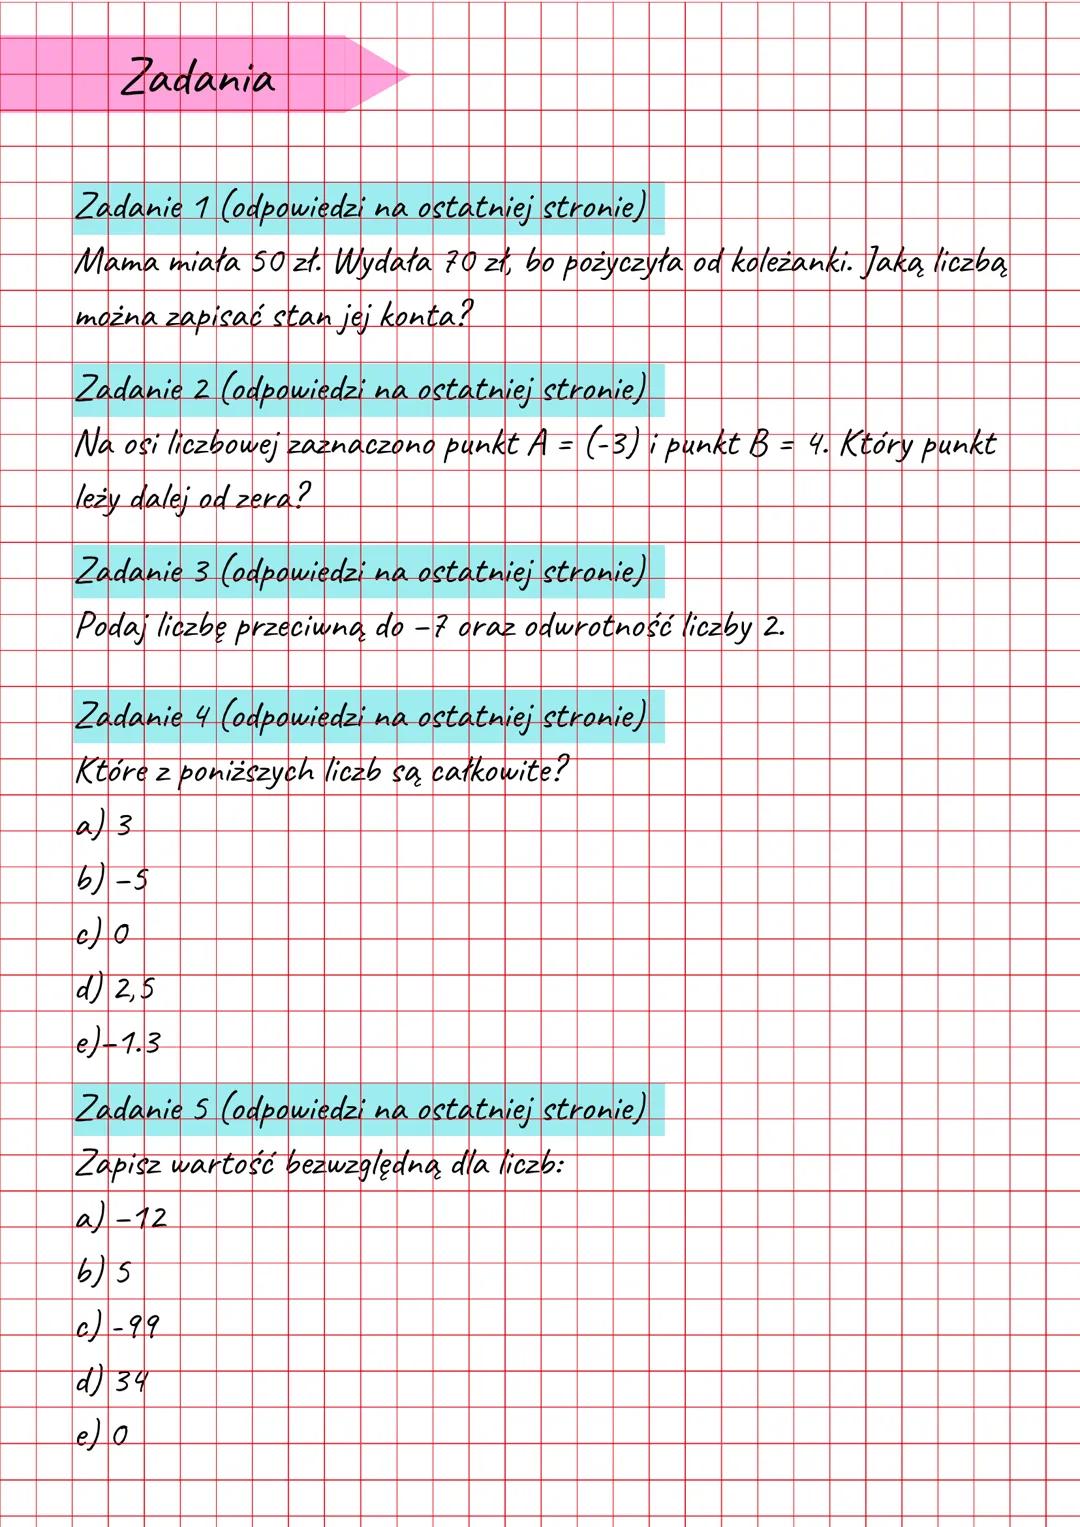 Zadania
Zadanie 1 (odpowiedzi na ostatniej stronie)
Mama miała 50 zł. Wydała 70 zł, bo pożyczyła od koleżanki. Jaką liczbą
można zapisać stan jej konta?
Zadanie 2 (odpowiedzi na ostatniej stronie)
Na osi liczbowej zaznaczono punkt A = (-3) i punkt B = 4. Który punkt
leży dalej od zera?
Zadanie 3 (odpowiedzi na ostatniej stronie)
Podaj liczbę przeciwną do −7 oraz odwrotność liczby 2.
Zadanie 4 (odpowiedzi na ostatniej stronie)
Które z poniższych liczb są całkowite?
a) 3
b) −5
c) 0
d) 2,5
e)−1.3
Zadanie 5 (odpowiedzi na ostatniej stronie)
Zapisz wartość bezwzględną dla liczb:
a) −12
b) 5
c) -99
d) 34
e) 0